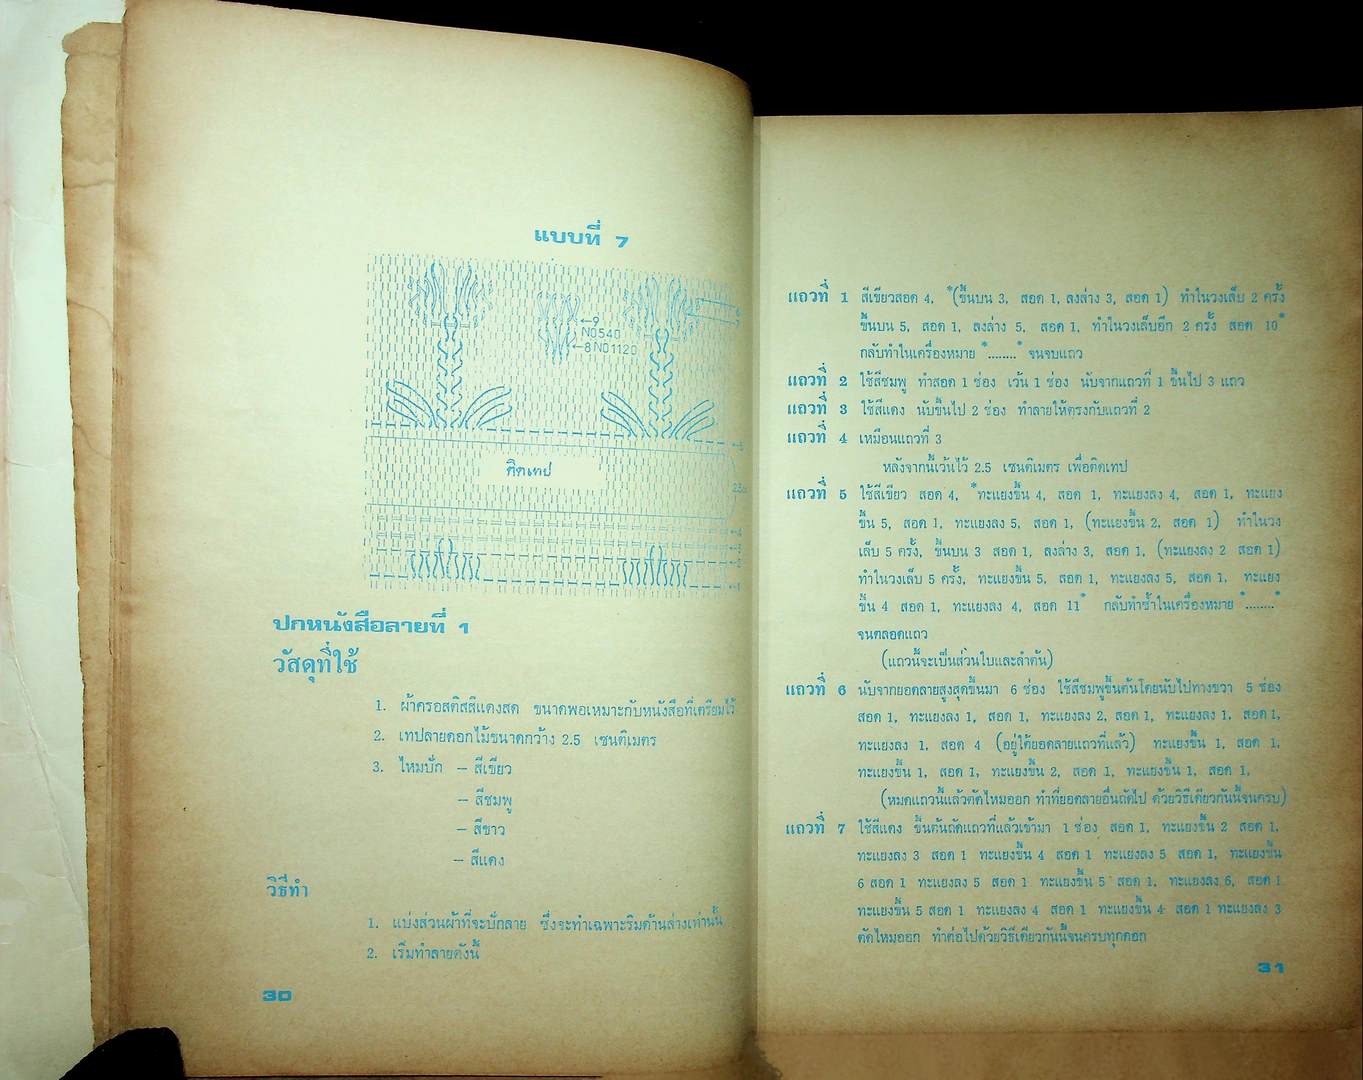 แบบที่ 7
←9
NO540
←8 NO1120
ติดเทป
ปกหนังสือลายที่ 1
วัสดุที่ใช้
1. ผ้าครอสติสสีแดงสด ขนาดพอเหมาะกับหนังสือที่เตรียมไว้
2. เทปลายดอกไม้ขนาดกว้าง 2.5 เซนติเมตร
3. ไหมปัก – สีเขียว
– สีชมพู
– สีขาว
– สีแดง
วิธีทำ
1. แบ่งส่วนผ้าที่จะปักลาย ซึ่งจะทำเฉพาะริมด้านล่างเท่านั้น
2. เริ่มทำลายดังนี้
30
แถวที่ 1 สีเขียวสอด 4, *(ขึ้นบน 3, สอด 1, ลงล่าง 3, สอด 1) ทำในวงเล็บ 2 ครั้ง
ขึ้นบน 5, สอด 1, ลงล่าง 5, สอด 1, ทำในวงเล็บอีก 2 ครั้ง สอด 10*
กลับทำในเครื่องหมาย *........* จนจบแถว
แถวที่ 2 ใช้สีชมพู ทำสอด 1 ช่อง เว้น 1 ช่อง นับจากแถวที่ 1 ขึ้นไป 3 แถว
แถวที่ 3 ใช้สีแดง นับขึ้นไป 2 ช่อง ทำลายให้ตรงกับแถวที่ 2
แถวที่ 4 เหมือนแถวที่ 3
หลังจากนี้เว้นไว้ 2.5 เซนติเมตร เพื่อติดเทป
แถวที่ 5 ใช้สีเขียว สอด 4, *ทะแยงขึ้น 4, สอด 1, ทะแยงลง 4, สอด 1, ทะแยง
ขึ้น 5, สอด 1, ทะแยงลง 5, สอด 1, (ทะแยงขึ้น 2, สอด 1) ทำในวง
เล็บ 5 ครั้ง, ขึ้นบน 3 สอด 1, ลงล่าง 3, สอด 1, (ทะแยงลง 2 สอด 1)
ทำในวงเล็บ 5 ครั้ง, ทะแยงขึ้น 5, สอด 1, ทะแยงลง 5, สอด 1, ทะแยง
ขึ้น 4 สอด 1, ทะแยงลง 4, สอด 11* กลับทำซ้ำในเครื่องหมาย *........*
จนตลอดแถว
(แถวนี้จะเป็นส่วนใบและลำต้น)
แถวที่ 6 นับจากยอดลายสูงสุดขึ้นมา 6 ช่อง ใช้สีชมพูขึ้นต้นโดยนับไปทางขวา 5 ช่อง
สอด 1, ทะแยงลง 1, สอด 1, ทะแยงลง 2, สอด 1, ทะแยงลง 1, สอด 1,
ทะแยงลง 1, สอด 4 (อยู่ใต้ยอดลายแถวที่แล้ว) ทะแยงขึ้น 1, สอด 1,
ทะแยงขึ้น 1, สอด 1, ทะแยงขึ้น 2, สอด 1, ทะแยงขึ้น 1, สอด 1,
(หมดแถวนี้แล้วตัดไหมออก ทำที่ยอดลายอื่นถัดไป ด้วยวิธีเดียวกันนี้จนครบ)
แถวที่ 7 ใช้สีแดง ขึ้นต้นถัดแถวที่แล้วเข้ามา 1 ช่อง สอด 1, ทะแยงขึ้น 2 สอด 1,
ทะแยงลง 3 สอด 1 ทะแยงขึ้น 4 สอด 1 ทะแยงลง 5 สอด 1, ทะแยงขึ้น
6 สอด 1 ทะแยงลง 5 สอด 1 ทะแยงขึ้น 5 สอด 1, ทะแยงลง 6, สอด 1
ทะแยงขึ้น 5 สอด 1 ทะแยงลง 4 สอด 1 ทะแยงขึ้น 4 สอด 1 ทะแยงลง 3
ตัดไหมออก ทำต่อไปด้วยวิธีเดียวกันนี้จนครบทุกดอก
31